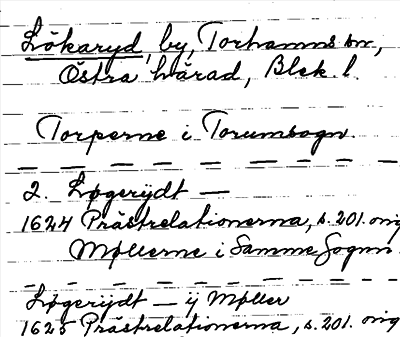 Lökaryd, by, Torhamns sn,
Östra härad, Blek. l.
Torperne i Torumsogn.
2. Løgerÿdt —
1624 Prästrelationerna, s. 201. orig
Møllerne i Samme Sogn.
Løgerÿdt — ij Møller
1625 Prästrelationerna, s. 201. orig